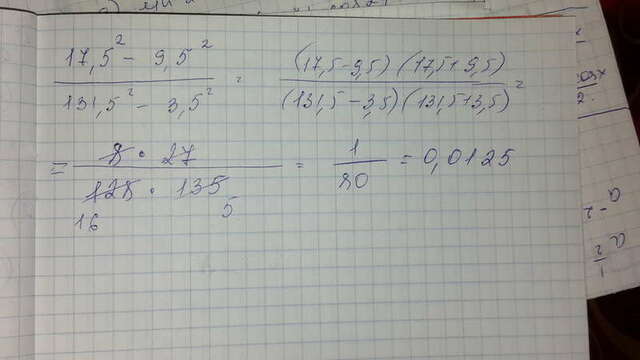 17,5² - 9,5² / 131,5² - 3,5² = (17,5-9,5)(17,5+9,5) / (131,5-3,5)(131,5+3,5)²
= 8 · 27 / 128 · 135 = 1 / 80 = 0,0125
16 5
a-2